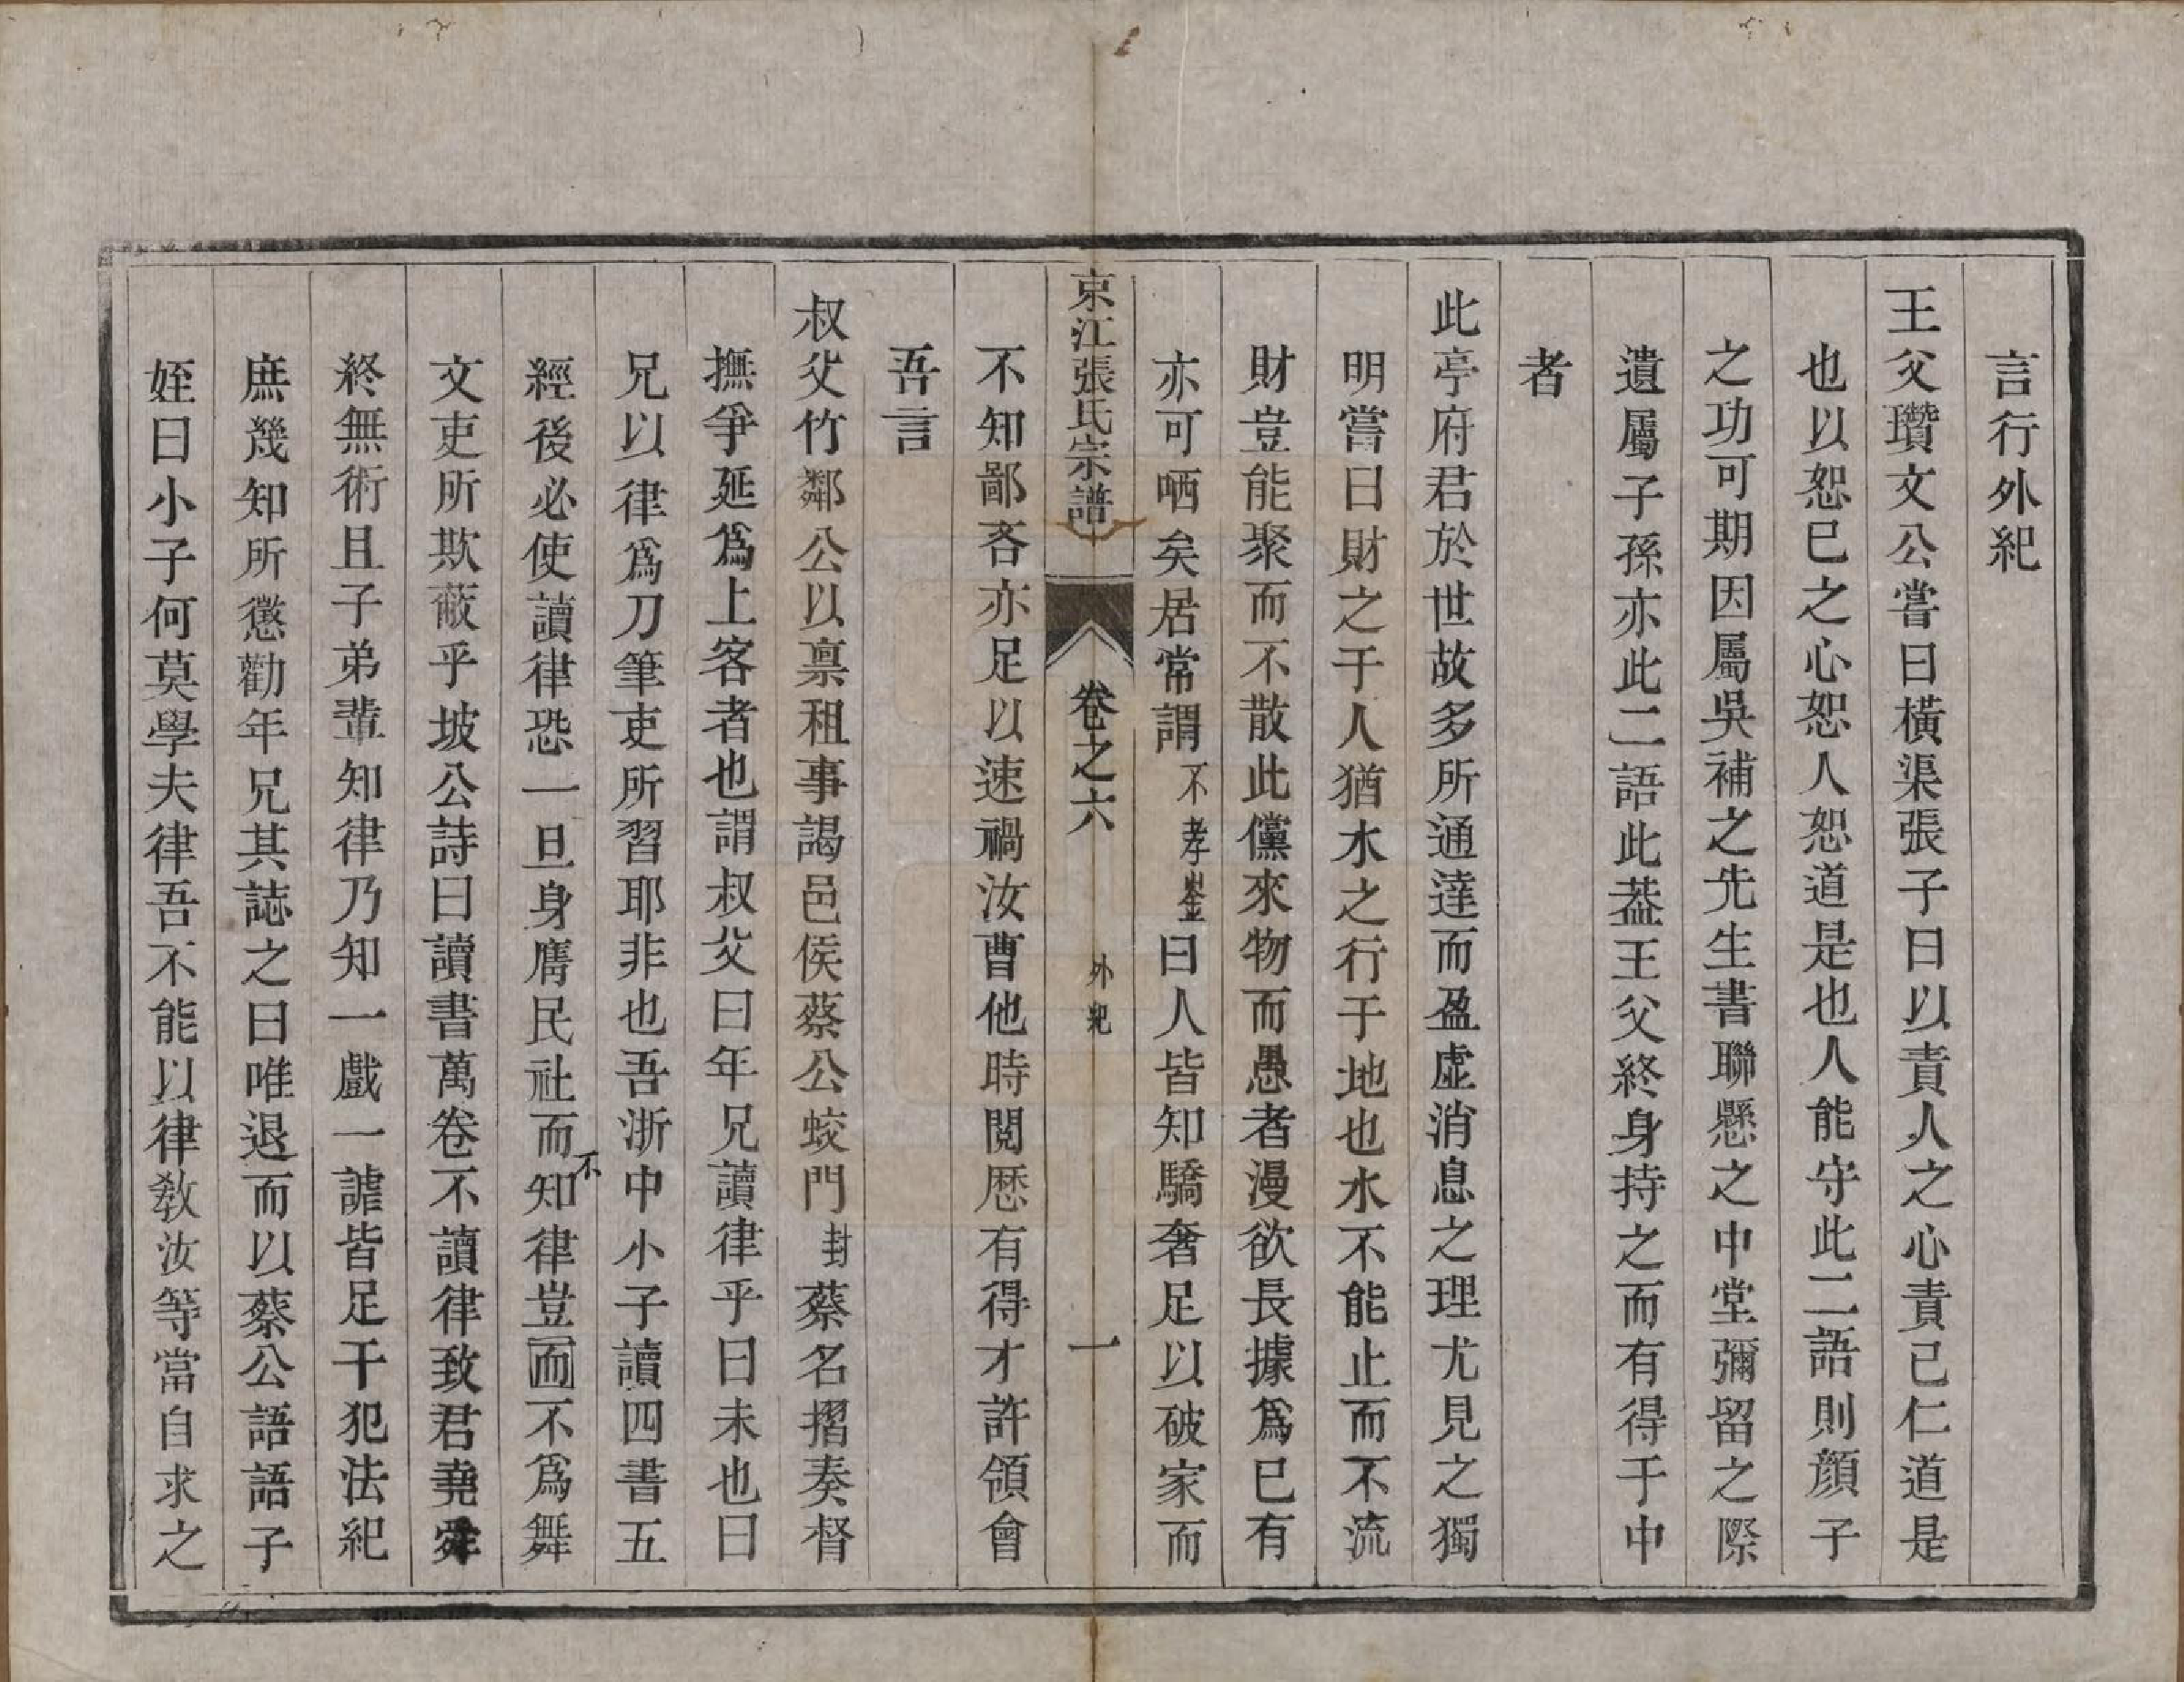 言行外紀
王父瓚文公嘗曰橫渠張子曰以責人之心責己仁道是
也以恕巳之心恕人恕道是也人能守此二語則顔子
之功可期因屬吳補之先生書聯懸之中堂彌留之際
遺屬子孫亦此二語此葢王父終身持之而有得于中
者
此亭府君於世故多所通達而盈虛消息之理尤見之獨
明嘗曰財之于人猶水之行于地也水不能止而不流
財豈能聚而不散此儻來物而愚者漫欲長據爲巳有
亦可哂矣居常謂不孝崟曰人皆知驕奢足以破家而
京江張氏宗譜 卷之六 外紀 一
不知鄙吝亦足以速禍汝曹他時閱歷有得才許領會
吾言
叔父竹鄰公以禀租事謁邑侯蔡公蛟門封蔡名摺奏督
撫爭延爲上客者也謂叔父曰年兄讀律乎曰未也曰
兄以律爲刀筆吏所習耶非也吾浙中小子讀四書五
經後必使讀律恐一旦身膺民社而不知律豈面不爲舞
文吏所欺蔽乎坡公詩曰讀書萬卷不讀律致君堯舜
終無術且子弟輩知律乃知一戲一謔皆足干犯法紀
庶幾知所懲勸年兄其誌之曰唯退而以蔡公語語子
姪曰小子何莫學夫律吾不能以律敎汝等當自求之